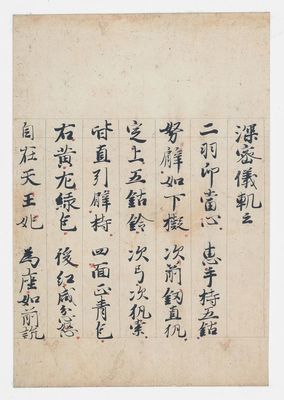 深密儀軌云
二羽印當心 惠手持五鈷
努臂如下擬 次前鉤直執
定上五鈷鈴 次弓次執索
皆直引臂持 四面正青色
右黃左綠色 後紅咸忿怒
自在天王妃 為座如前說